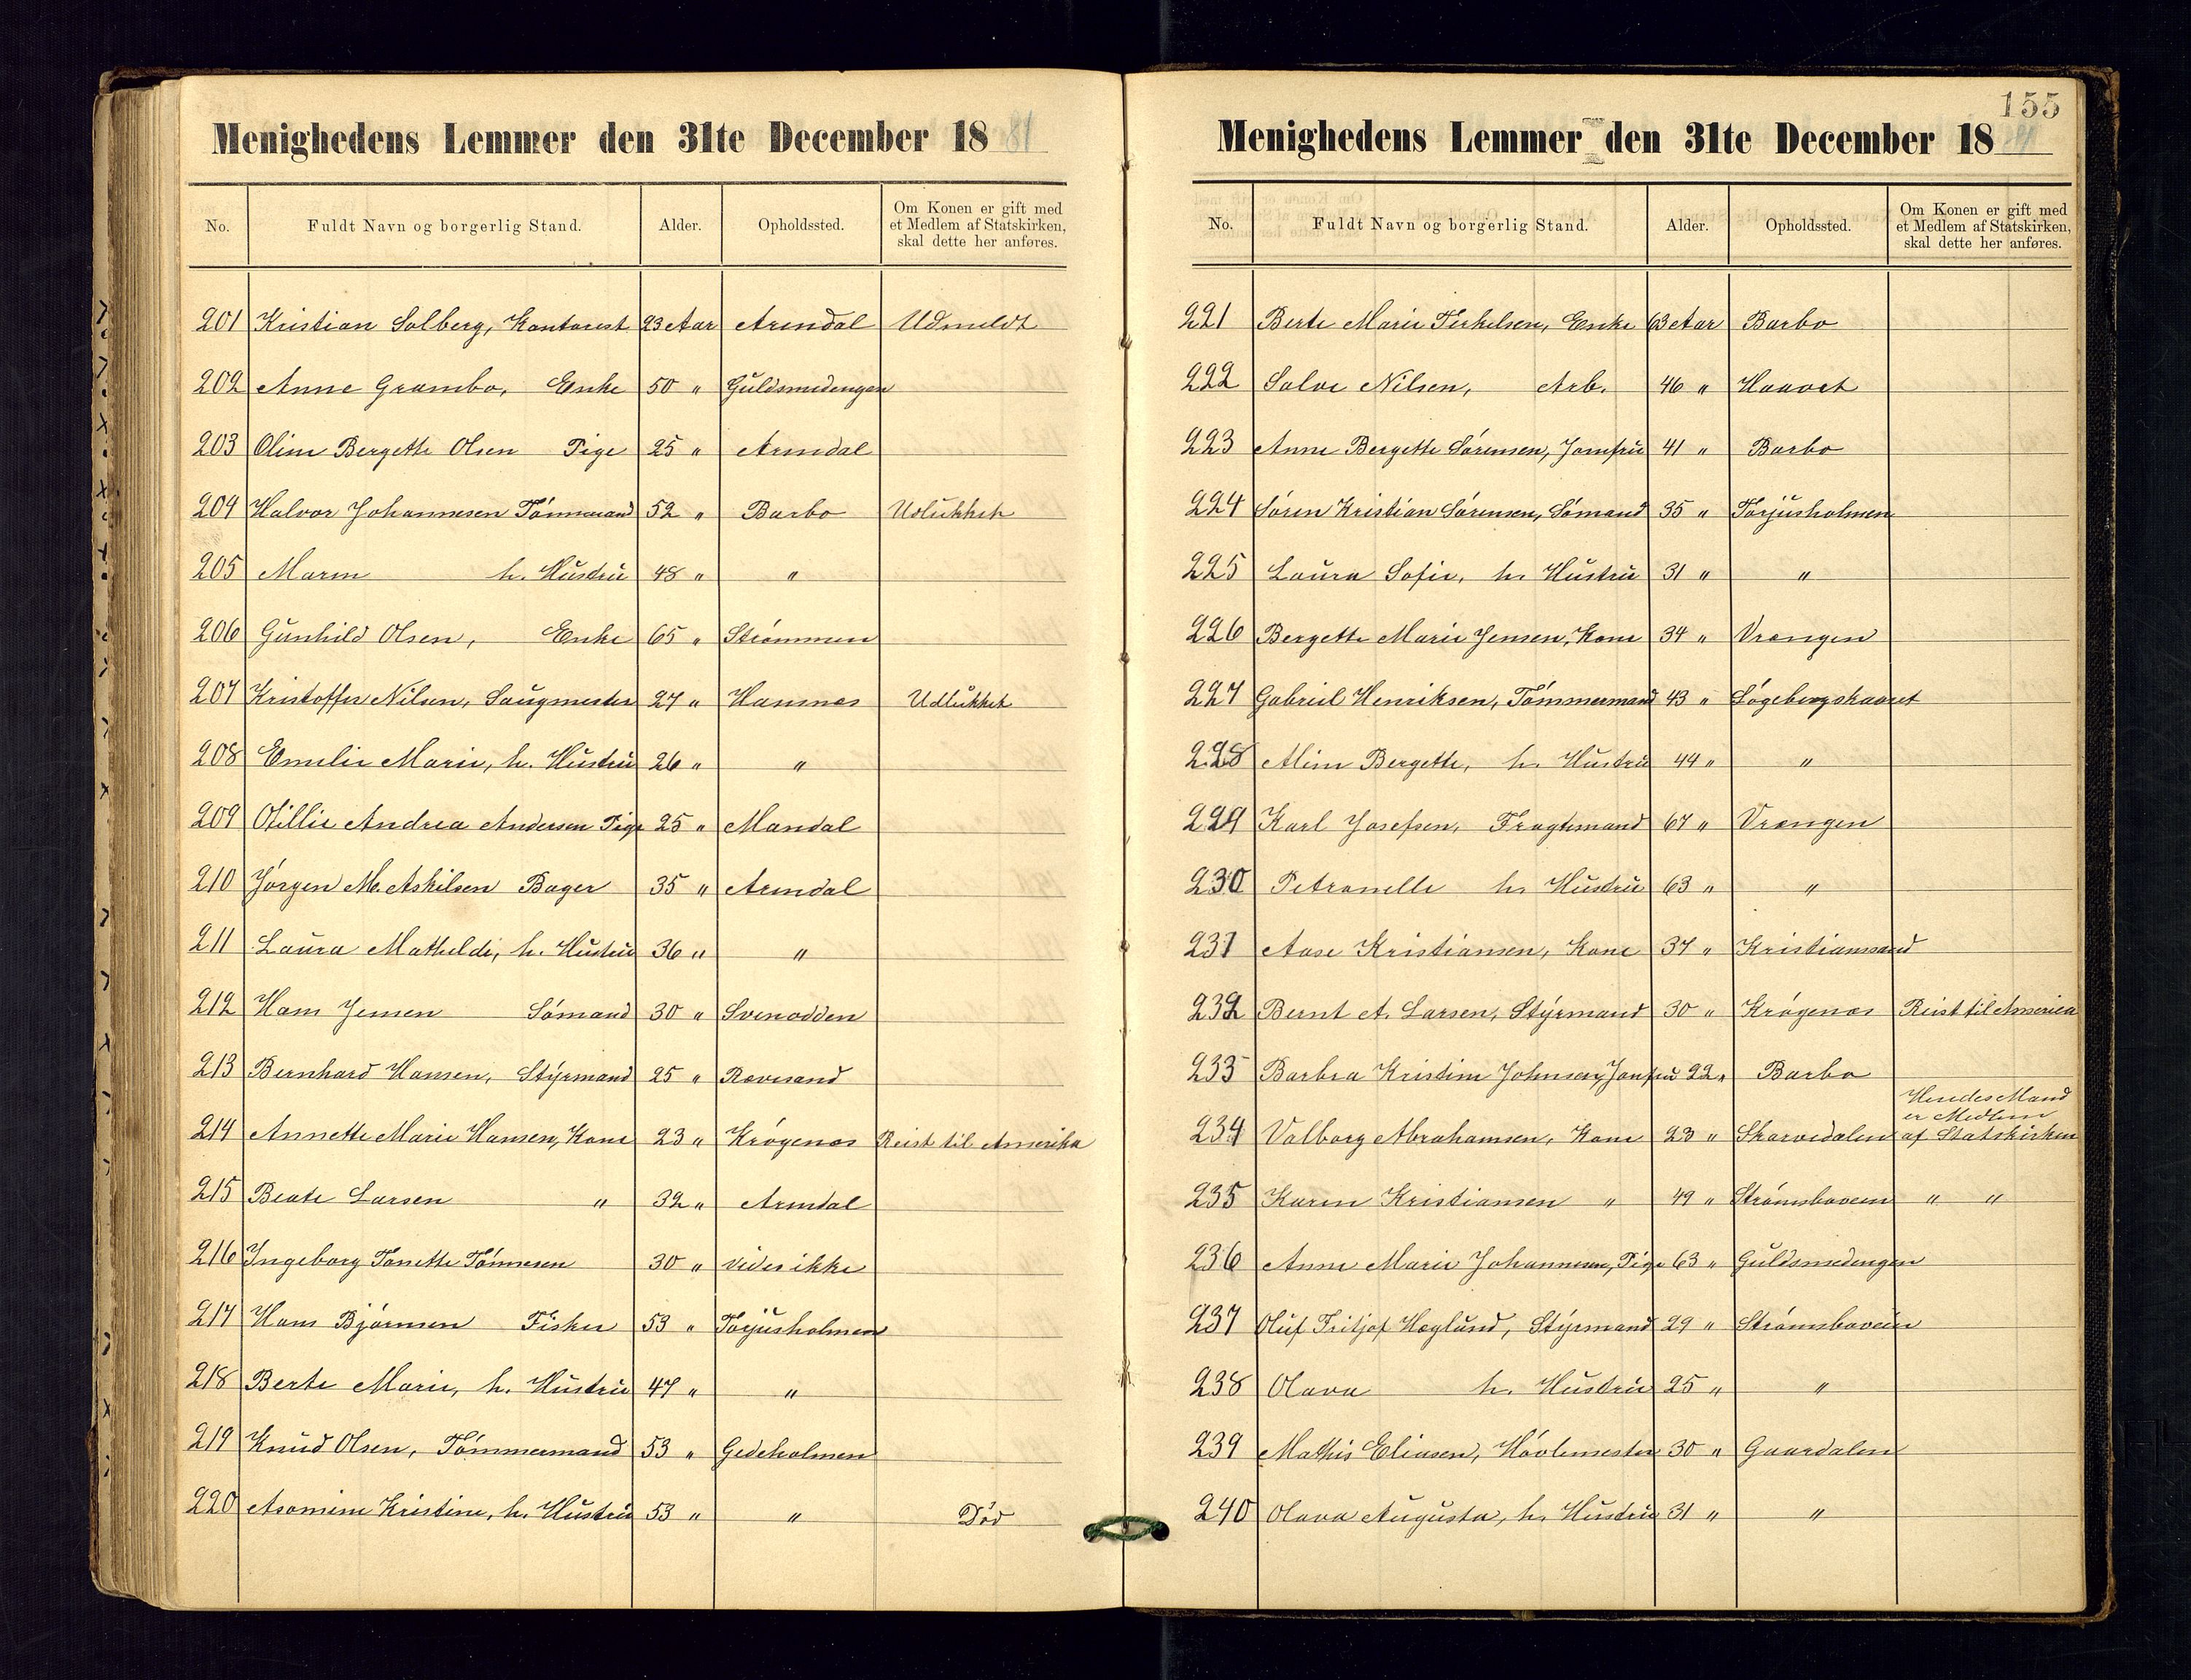 Menighedens Lemmer den 31te December 1881
No. Fuldt Navn og borgerlig Stand. Alder. Opholdssted. Om Konen er gift med et Medlem af Statskirken, skal dette her anføres.
201 Kristian Solberg, Kontorist 23 Aar Arendal Udmeldt
202 Anne Grambo, Enke 50 " Guldsmedengen
203 Oline Bergette Olsen Pige 25 " Arendal
204 Halvor Johannesen Tømmmand 52 " Barbo Udlukket
205 Maren h. Hustru 48 " "
206 Gunhild Olsen, Enke 65 " Strømmen
207 Kristoffer Nilsen, Saugmester 27 " Hamnæs Udlukket
208 Emelie Marie, h. Hustru 26 " "
209 Otillie Andrea Andersen Pige 25 " Mandal
210 Jørgen M. Askilsen Bager 35 " Arendal
211 Laura Mathilde, h. Hustru 36 " "
212 Hans Jensen Sømand 30 " Svenodden
213 Bernhard Hansen, Styrmand 25 " Revesand
214 Annette Marie Hansen, Kone 23 " Krøgenæs Reist til Amerika
215 Beate Larsen " 32 " Arendal
216 Ingeborg Tonette Tønnesen 30 " vides ikke
217 Hans Bjørnsen Fisker 53 " Torjusholmen
218 Berte Marie, h. Hustru 47 " "
219 Knud Olsen, Tømmermand 53 " Gedeholmen
220 Asomine Kristine, h. Hustru 53 " " Död
155
Menighedens Lemmer den 31te December 1881
No. Fuldt Navn og borgerlig Stand. Alder. Opholdssted. Om Konen er gift med et Medlem af Statskirken, skal dette her anføres.
221 Berte Marie Terkelsen, Enke 63 Aar Barbo
222 Salve Nilsen, Arb. 46 " Haavet
223 Anne Bergette Sørensen, Jomfru 41 " Barbo
224 Søren Kristian Sørensen, Sømand 35 " Torjusholmen
225 Laura Sofie, h. Hustru 31 " "
226 Bergette Marie Jensen, Kone 34 " Vrængen
227 Gabriel Henriksen, Tømmermand 43 " Løgebergskaaret
228 Aline Bergette, h. Hustru 44 " "
229 Karl Josefsen, Fragtemand 67 " Vrængen
230 Petronelle h. Hustru 63 " "
231 Aase Kristiansen, Kone 37 " Kristianssand
232 Bernt A. Larsen, Styrmand 30 " Krøgenæs Reist til America
233 Barbra Kristine Johnsen, Jomfru 22 " Barbo
234 Valborg Abrahamsen, Kone 23 " Skarvedalen Hendes Mand er Medlem af Statskirken
235 Karen Kristiansen " 49 " Strømsboveien " "
236 Anne Marie Johannesen, Pige 63 " Guldsmedengen
237 Oluf Fritjof Høglund, Styrmand 29 " Strømsboveien
238 Olava h. Hustru 25 " "
239 Mathis Eliasen, Høvlemester 30 " Gaardalen
240 Olava Augusta, h. Hustru 31 " "